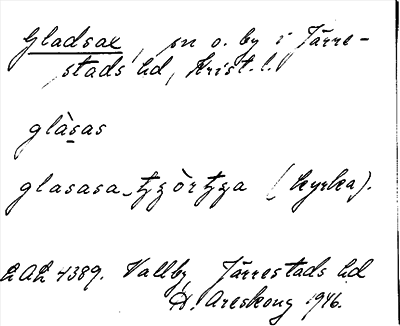 Gladsax, sn o. by i Järre-
stads hd, Krist. l.
glàsas
glasasa-tʒòrtʒa (kyrka).
LAL 4389. Vallby, Järrestads hd
H. Areskoug 1946.